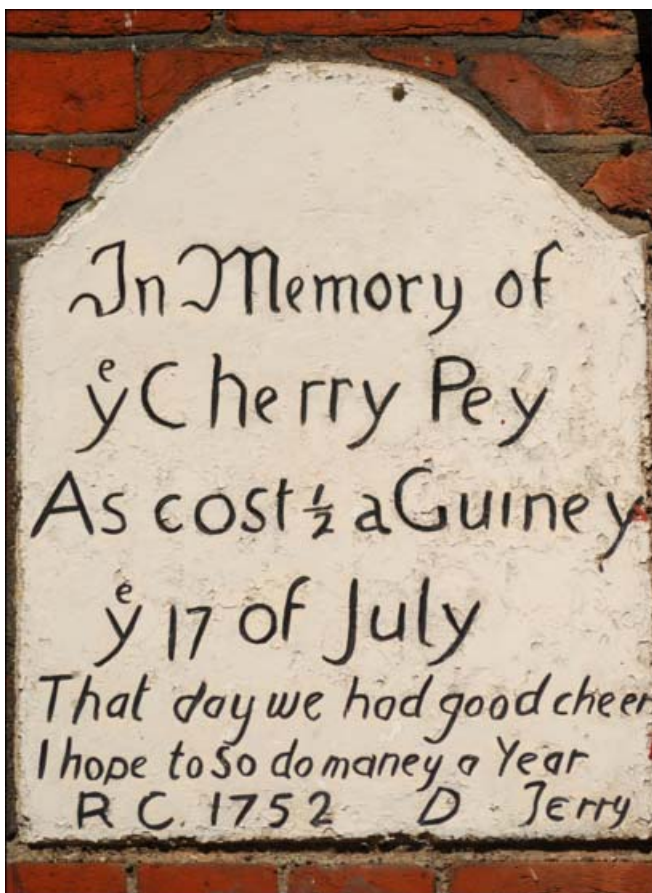 In Memory of
yᵉ Cherry Pey
As cost ½ a Guiney
yᵉ 17 of July
That day we had good cheer
I hope to So do maney a Year
R C. 1752 D Terry